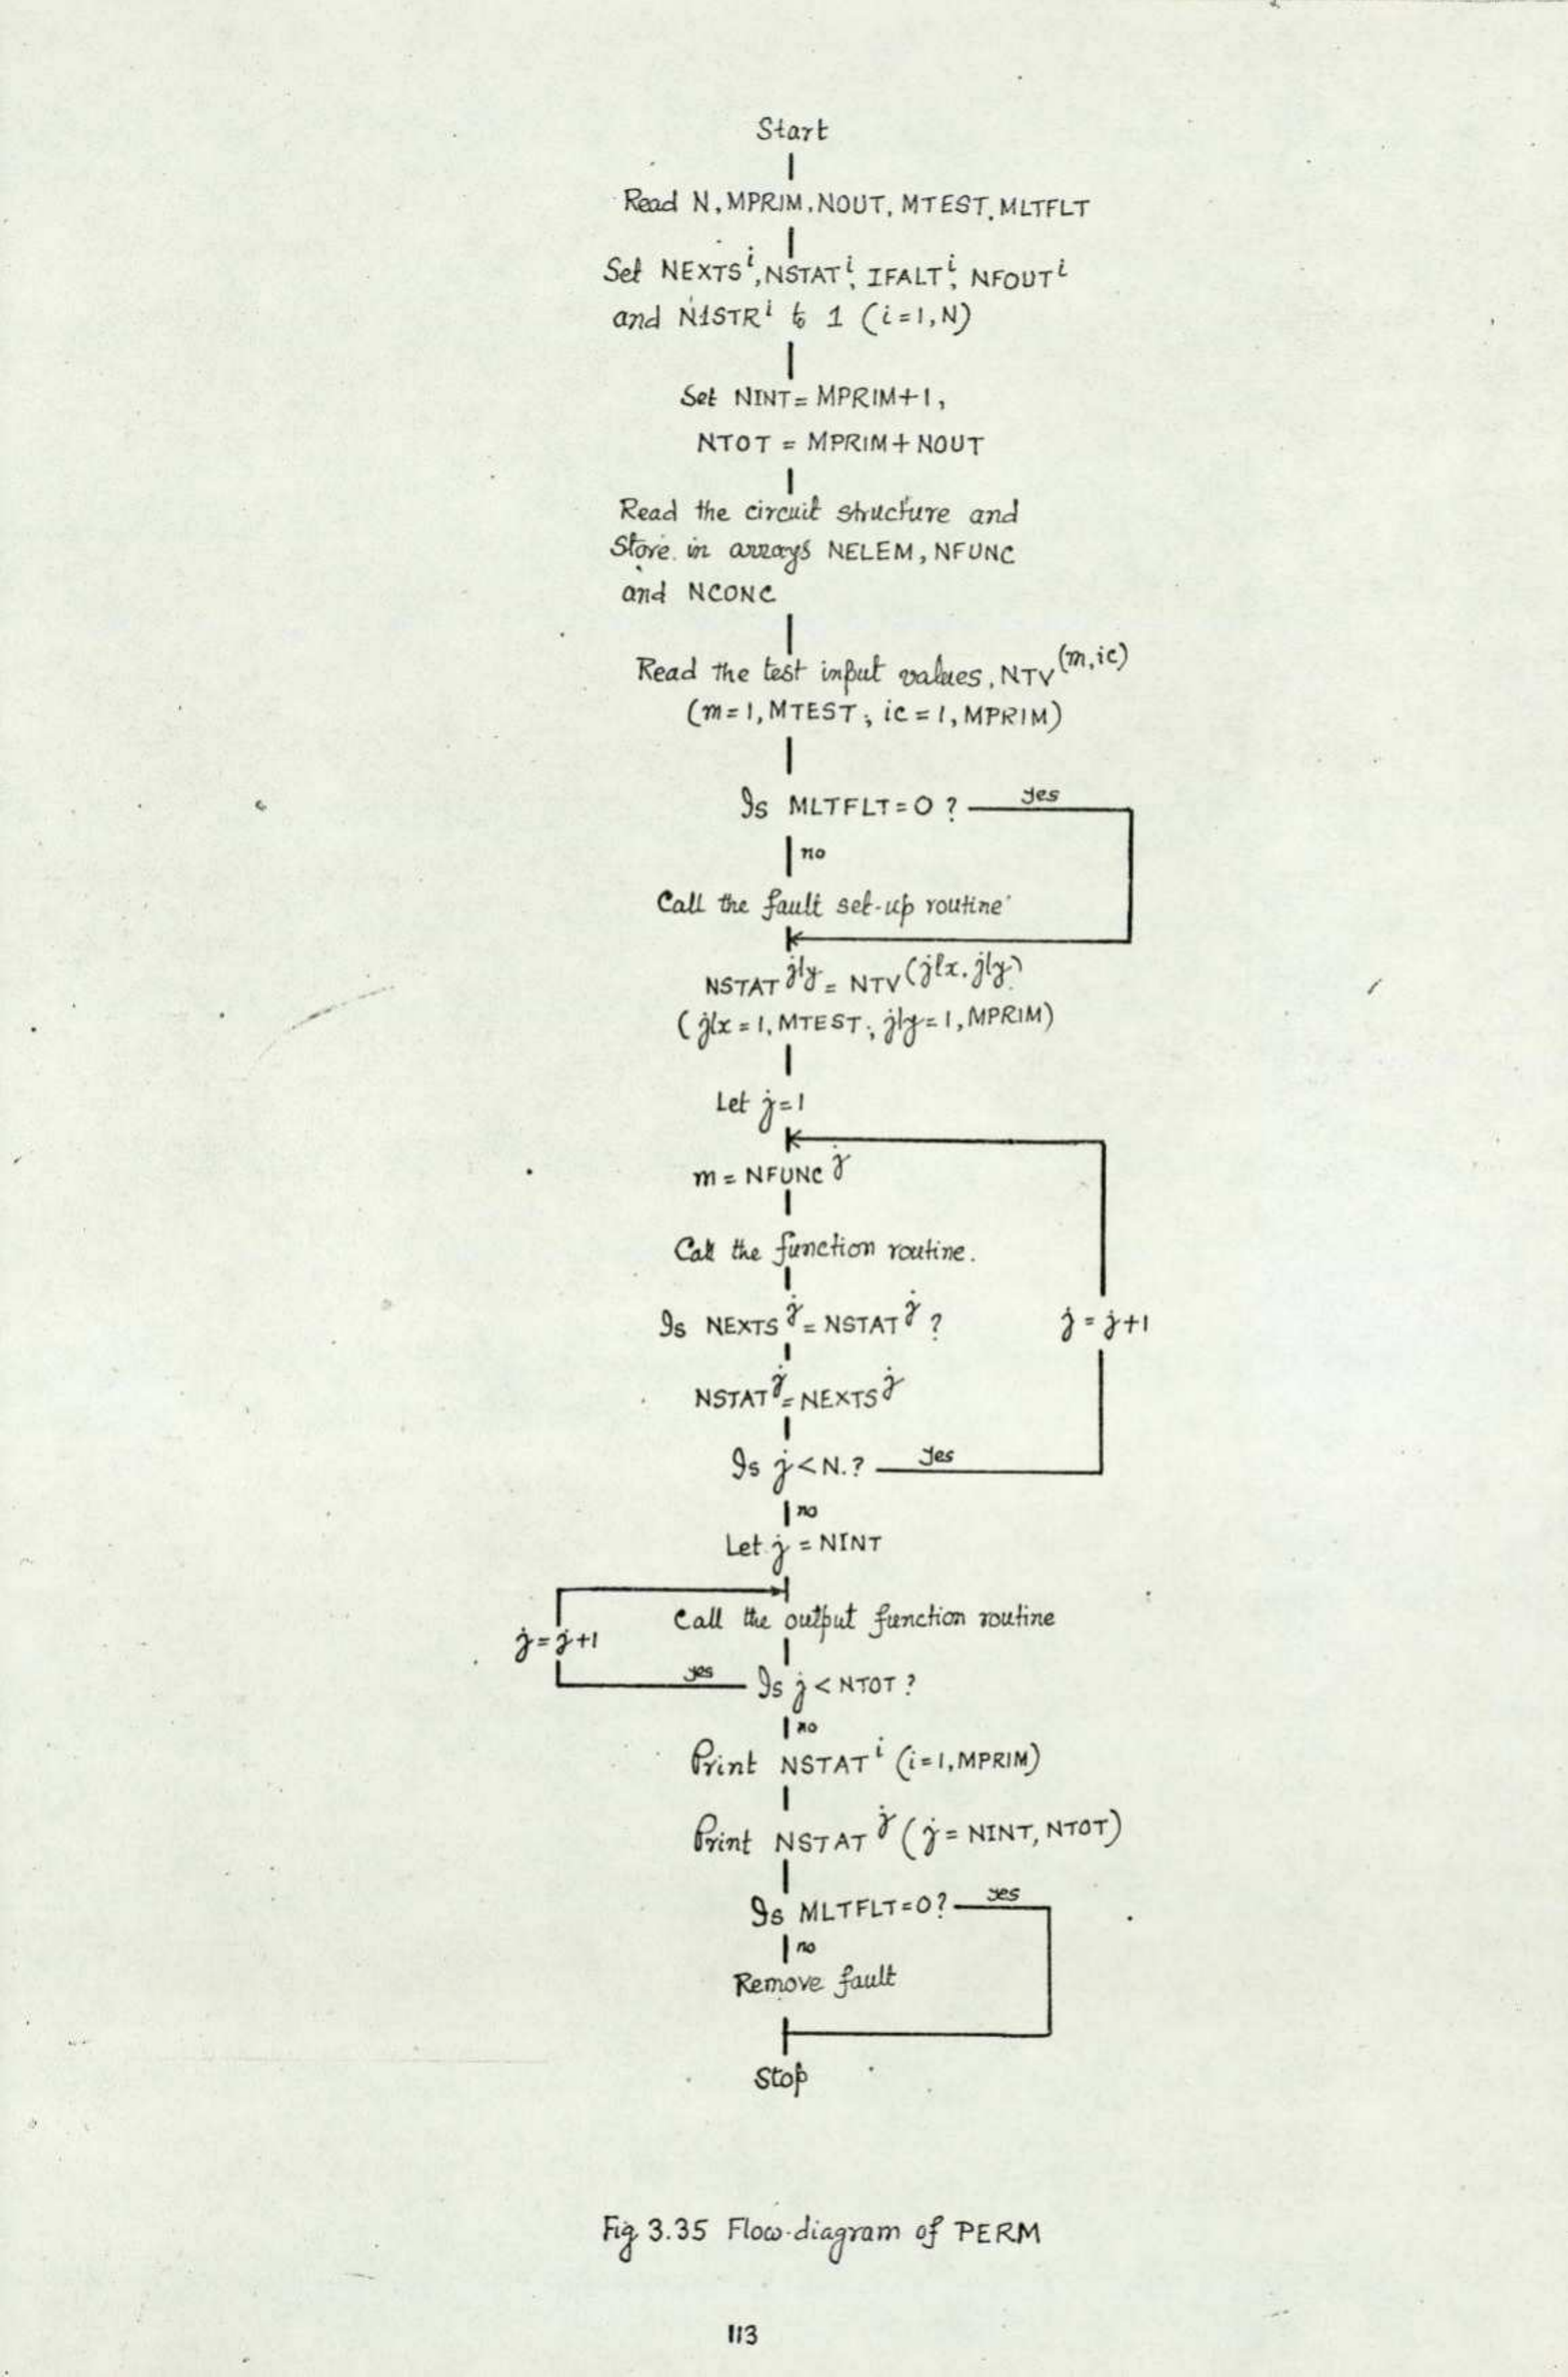 Start
Read N, MPRIM, NOUT, MTEST, MLTFLT
Set NEXTSⁱ, NSTATⁱ, IFALTⁱ, NFOUTⁱ
and N1STRⁱ to 1 (i=1,N)
Set NINT= MPRIM+1,
NTOT = MPRIM+NOUT
Read the circuit structure and
Store in arrays NELEM, NFUNC
and NCONC
Read the test input values, NTV(m,ic)
(m=1, MTEST; ic=1, MPRIM)
Is MLTFLT=0 ? yes
no
Call the fault set-up routine
NSTAT jly = NTV(jlx, jly)
(jlx=1, MTEST; jly=1, MPRIM)
Let j=1
m = NFUNC j
Call the function routine.
Is NEXTS j = NSTAT j ? j = j+1
NSTAT j = NEXTS j
Is j < N.? yes
no
Let j = NINT
Call the output function routine
j = j+1
yes Is j < NTOT ?
no
Print NSTATⁱ (i=1, MPRIM)
Print NSTAT j (j= NINT, NTOT)
Is MLTFLT=0? yes
no
Remove fault
Stop
Fig 3.35 Flow-diagram of PERM
113